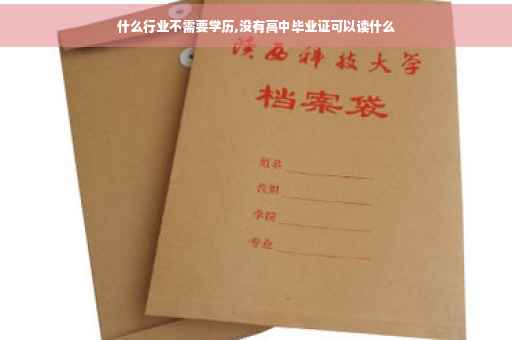 什么行业不需要学历,没有高中毕业证可以读什么
陕西科技大学
档案袋
姓名
教别
学院
专业